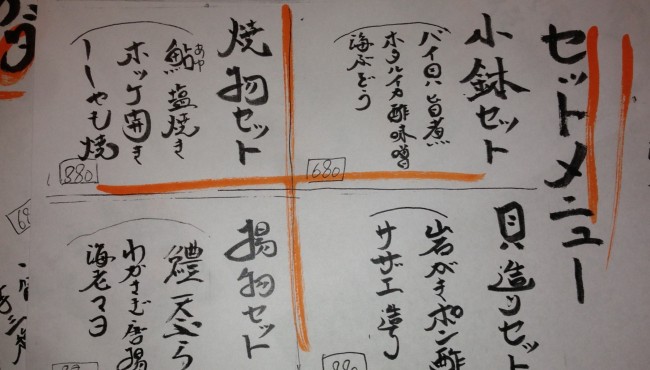 セットメニュー
小鉢セット
バイ貝旨煮
ホタルイカ酢味噌
海ぶどう
680
焼物セット
鮎塩焼き
ホッケ開き
ししゃも焼
880
貝造りセット
岩がきポン酢
サザエ造り
880
揚物セット
鱧天ぷら
わかさぎ唐揚
海老マヨ